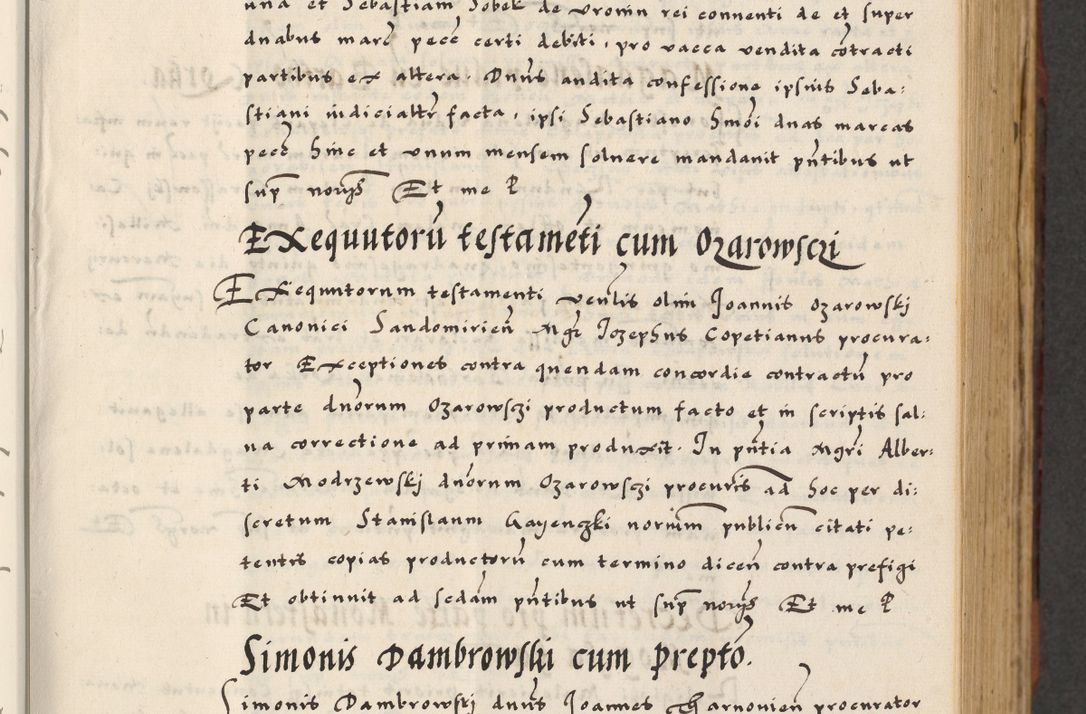 una et Sebastiam Sobek de Uromn rei conuenti de et super
duabus marc̃ pecc̃ certi debiti, pro vacca vendita cõtracti
partibus ex altera. Dnũs audita confessione ipsius Seba:
stiani iudicialtr̃ facta, ipsi Sebastiano Smoi duas marcas
pecc̃ hinc et unum mensem soluere mandauit pñtibus ut
sup̃ norijs̃ Et me P
Exequutorũ testamẽti cum Ozarowsczi
Exequutorum testamenti veñlis olim Joannis Ozarowskj
Canonici Sandomirieñ Mgr̃ Jozephus Copetianus procura:
tor Exceptiones contra quendam concordie contractũ pro
parte dnõrum Ozarowsczi productum facto et in scriptis sal:
ua correctione ad primam produxit. In pñtia Mgri Alber:
ti Modrzewskj dnõrum Ozarowsczi procuris̃ ad hoc per di:
scretum Stanislaum Gayenczki norium̃ publicũ citati pe:
tentis copias productorũ cum termino diceñ contra prefigi
Et obtinuit ad sedãm pñtibus ut sup̃ norijs̃ Et me P
Simonis Dambrowski cum prepto.
Simonis Dambrowskj dnũs Joannes Tharnouieñ procurator